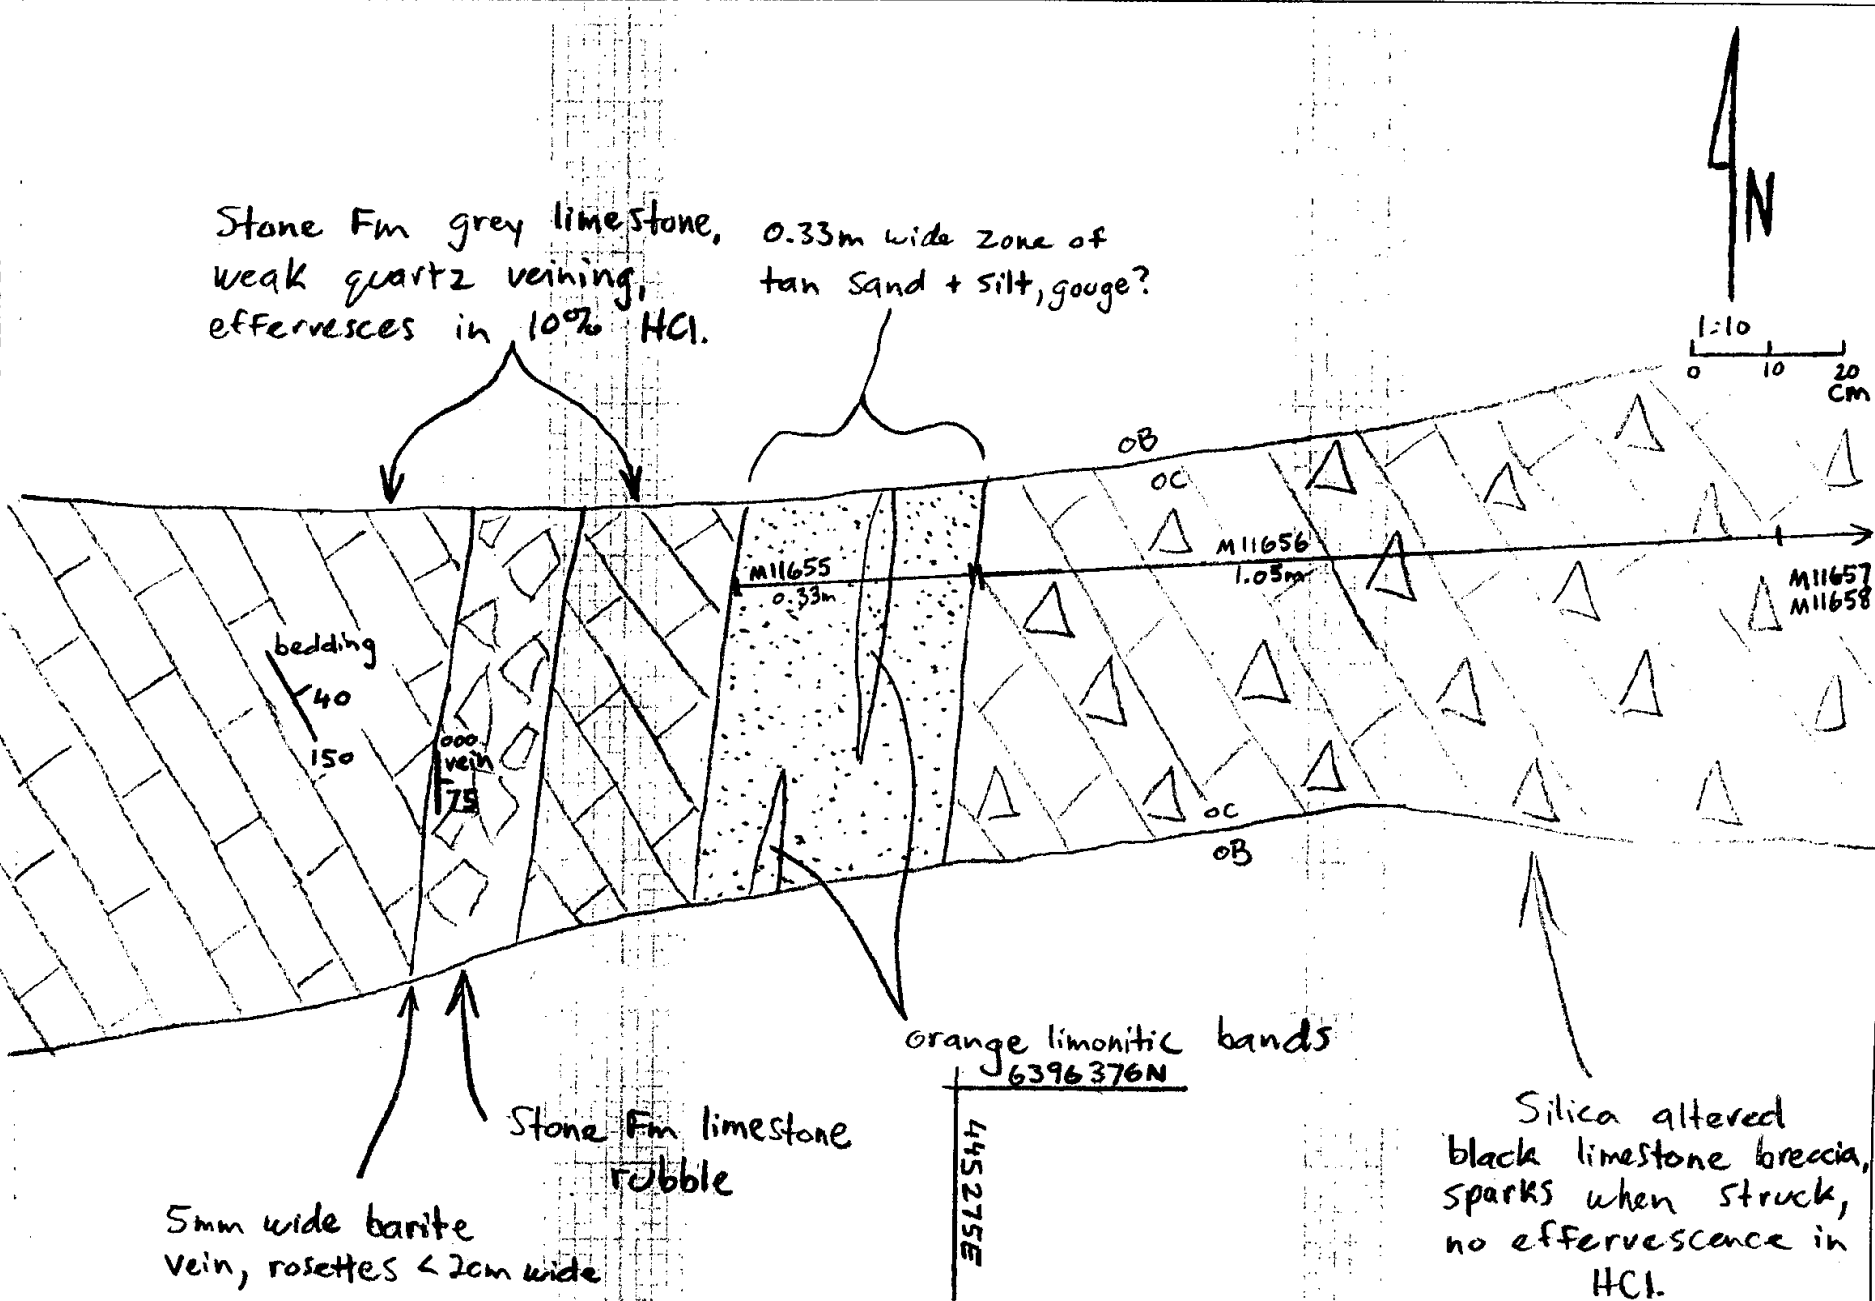 N
1:10
0 10 20
cm
Stone Fm grey limestone,
weak quartz veining,
effervesces in 10% HCl.
0.33m wide zone of
tan sand + silt, gouge?
OB
OC
M11655
0.33m
M11656
1.05m
M11657
M11658
bedding
40
150
000
vein
75
OC
OB
orange limonitic bands
6396376N
445275E
Stone Fm limestone
rubble
5mm wide barite
vein, rosettes < 2cm wide
Silica altered
black limestone breccia,
sparks when struck,
no effervescence in
HCl.